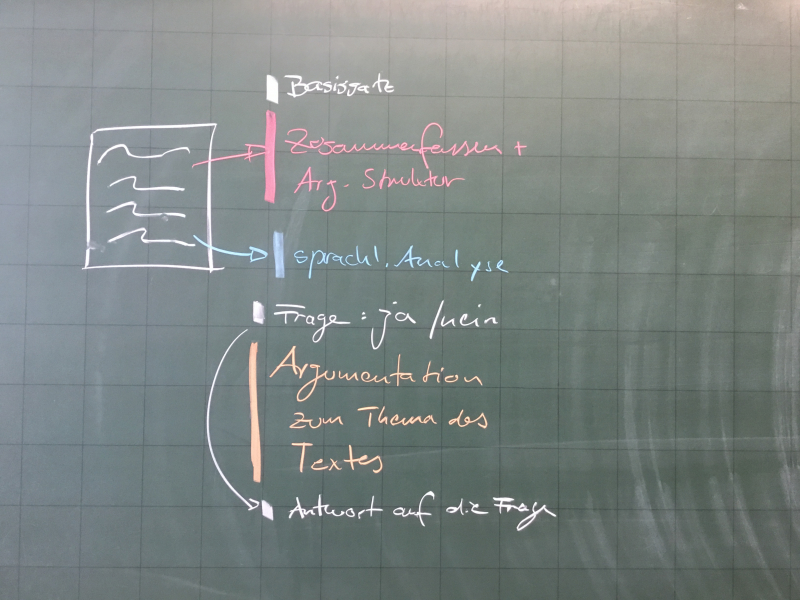 Basissatz
Zusammenfassen +
Arg. Struktur
sprachl. Analyse
Frage: ja /nein
Argumentation
zum Thema des
Textes
Antwort auf die Frage